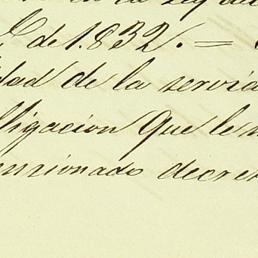 de 1.832. =
dad de la servid
ligacion que le
encionado decre